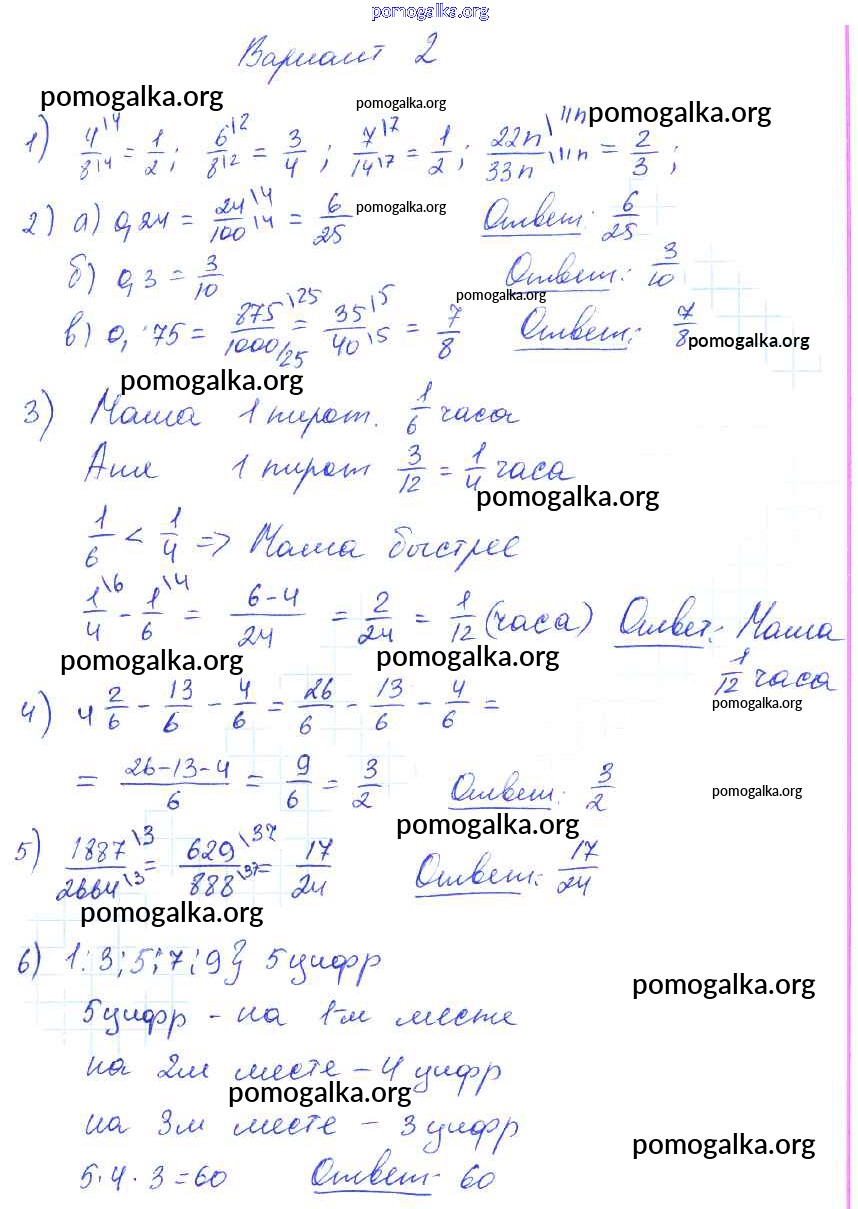 pomogalka.org
Вариант 2
pomogalka.org pomogalka.org
1) 4\4/8\4 = 1/2; 6\2/8\2 = 3/4; 7\7/14\7 = 1/2; 22n\11n/33n\11n = 2/3; pomogalka.org
2) а) 0,24 = 24\4/100\4 = 6/25 pomogalka.org Ответ: 6/25
б) 0,3 = 3/10 Ответ: 3/10
pomogalka.org
в) 0, 75 = 875\25/1000/25 = 35\5/40\5 = 7/8 Ответ: 7/8 pomogalka.org
pomogalka.org
3) Маша 1 пирот. 1/6 часа
Аня 1 пирот 3/12 = 1/4 часа
pomogalka.org
1/6 < 1/4 => Маша быстрее
1\6/4 - 1\4/6 = 6-4/24 = 2/24 = 1/12 (часа) Ответ: Маша
pomogalka.org pomogalka.org 1/12 часа
pomogalka.org
4) 4 2/6 - 13/6 - 4/6 = 26/6 - 13/6 - 4/6 =
= 26-13-4/6 = 9/6 = 3/2 Ответ: 3/2 pomogalka.org
pomogalka.org
5) 1887\3/2664\3 = 629\37/888\37 = 17/24 Ответ: 17/24
pomogalka.org
6) 1; 3; 5; 7; 9} 5 цифр
pomogalka.org
5 цифр - на 1-м месте
на 2м месте - 4 цифр
pomogalka.org
на 3м месте - 3 цифр
pomogalka.org
5·4·3=60 Ответ: 60